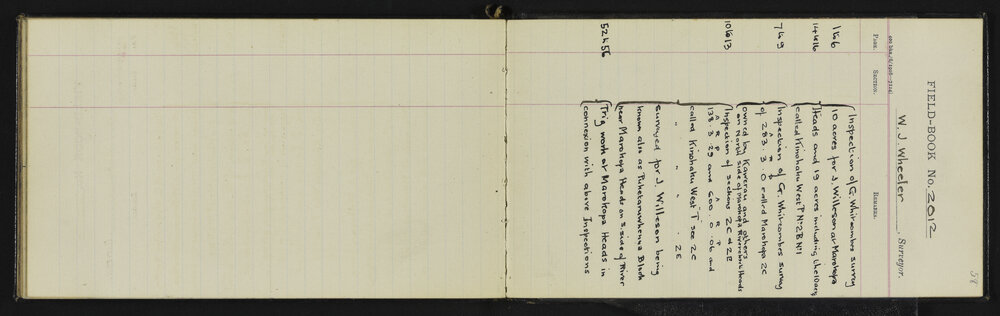 58
FIELD-BOOK No. 2012
W. J. Wheeler, Surveyor.
Page. Section. Remarks.
1 to 6 Inspection of G. Whitcombes survey
10 acres for J. Willeson at Marokopa
14 to 16 Heads and 19 acres including the 10 acs
called Kinohaku West P No 2B No 1
7 to 9 Inspection of G. Whitcombes survey
of 283. 3. 0 called Marokopa 2C
owned by and others
on North side of Marokopa River near Heads
10 to 13 Inspection of sections 2C & 2E
A R P A R P
138. 3. 29 and 600. 0. 06 and
called Kinohaku West T sec 2C
" " " " 2E
surveyed for J. Willeson being
known also as Block
near Marokopa Heads on S side of River
52 to 56 Trig work at Marokopa Heads in
connexion with above Inspections